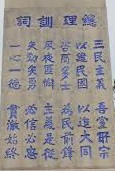 總理訓詞
三民主義　吾黨所宗
以建民國　以進大同
咨爾多士　為民前鋒
夙夜匪懈　主義是從
矢勤矢勇　必信必忠
一心一德　貫徹始終